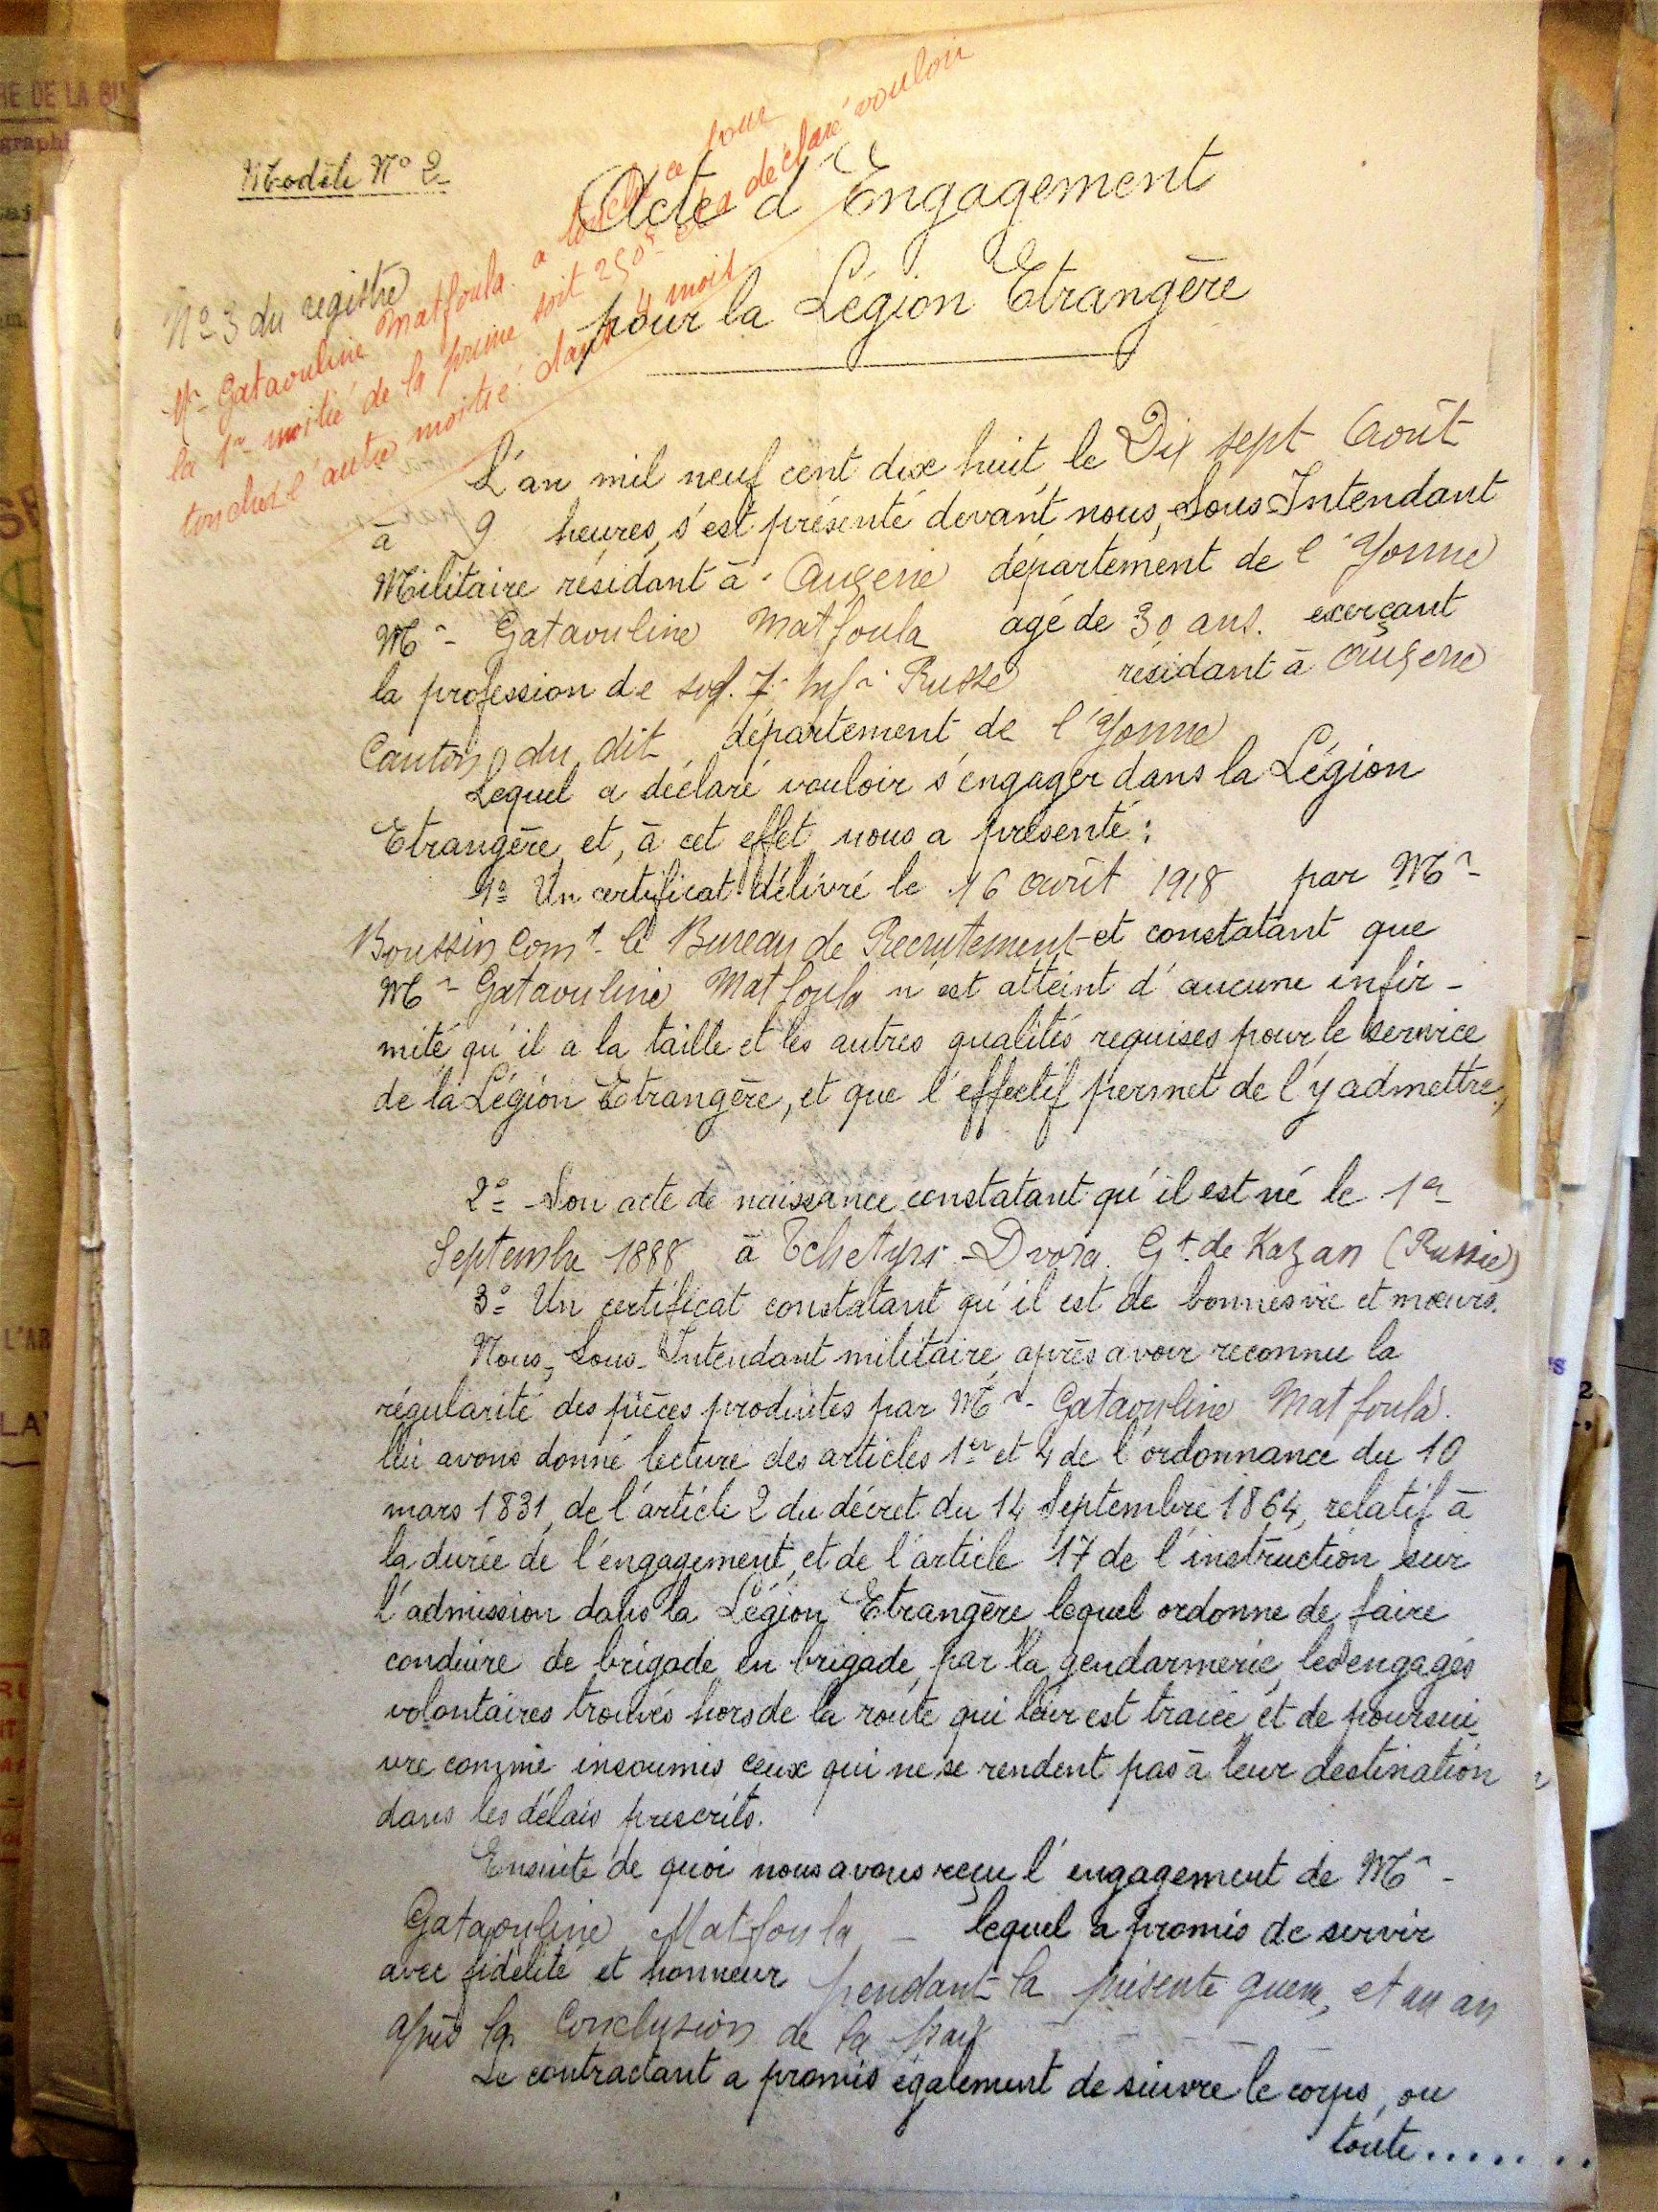 Modèle N° 2
Acte d'Engagement
pour la Légion Etrangère
N° 3 du registre
Mr Gataouline Matfoula a touché ce jour
la 1re moitié de la prime soit 250f et a déclaré vouloir
toucher l'autre moitié dans 4 mois
L'an mil neuf cent dix huit, le Dix sept Août
à 9 heures, s'est présenté devant nous, Sous-Intendant
Militaire résidant à Auxerre département de l'Yonne
Mr Gataouline Matfoula agé de 30 ans. exerçant
la profession de sof. 7. Infie Russe résidant à Auxerre
Canton du dit département de l'Yonne
Lequel a déclaré vouloir s'engager dans la Légion
Etrangère et, à cet effet nous a présenté :
1° Un certificat délivré le 16 août 1918 par Mr
Boussin Comt le Bureau de Recrutement et constatant que
Mr Gataouline Matfoula n'est atteint d'aucune infir-
mité qu'il a la taille et les autres qualités requises pour le service
de la Légion Etrangère, et que l'effectif permet de l'y admettre,
2° Son acte de naissance constatant qu'il est né le 1er
Septembre 1888 à Tchetyri-Dvora. Gt de Kazan (Russie)
3° Un certificat constatant qu'il est de bonnes vie et mœurs.
Nous, Sous-Intendant militaire, après avoir reconnu la
régularité des pièces produites par Mr Gataouline Matfoula.
lui avons donné lecture des articles 1er et 4 de l'ordonnance du 10
mars 1831, de l'article 2 du décret du 14 Septembre 1864, relatif à
la durée de l'engagement, et de l'article 17 de l'instruction sur
l'admission dans la Légion Etrangère, lequel ordonne de faire
conduire de brigade en brigade, par la gendarmerie, les engagés
volontaires trouvés hors de la route qui leur est tracée, et de poursui-
vre comme insoumis ceux qui ne se rendent pas à leur destination
dans les délais prescrits.
Ensuite de quoi nous avons reçu l'engagement de Mr
Gataouline Matfoula - lequel a promis de servir
avec fidélité et honneur pendant la présente guerre, et un an
après la Conclusion de la paix
Le contractant a promis également de suivre le corps, ou
toute.......